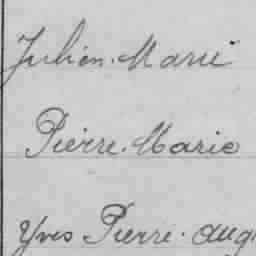 Julien. Marie
Pierre. Marie
Yves Pierre. Aug